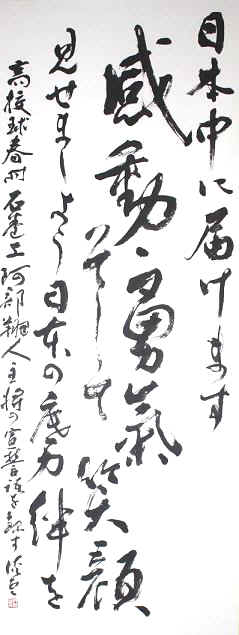 日本中に届けます
感動、勇氣そして笑顔
見せましょう日本の底力絆を
高校球春 石巻工阿部翔人主将の宣誓